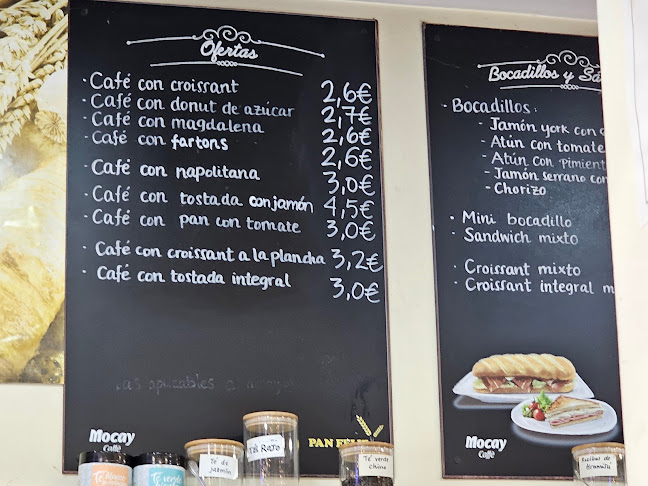 Ofertas
· Café con croissant 2,6€
· Café con donut de azúcar 2,7€
· Café con magdalena 2,6€
· Café con fartons 2,6€
· Café con napolitana 3,0€
· Café con tostada con jamón 4,5€
· Café con pan con tomate 3,0€
· Café con croissant a la plancha 3,2€
· Café con tostada integral 3,0€
Mocay
Caffè
PAN
Bocadillos y
· Bocadillos:
- Jamón york con
- Atún con tomate
- Atún con
- Jamón serrano con
- Chorizo
· Mini bocadillo
· Sandwich mixto
· Croissant mixto
· Croissant integral
Mocay
Caffè
Té verde
Té de
jazmín
Rojo
Té verde
chino